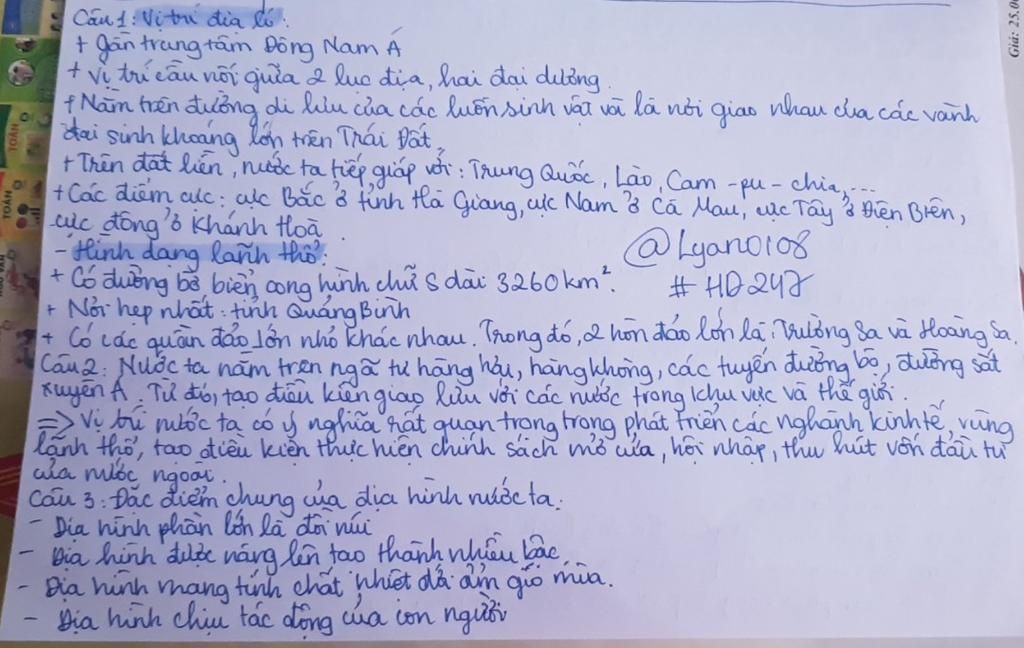 Câu 1: Vị trí địa lí:
+ gần trung tâm Đông Nam Á
+ vị trí cầu nối giữa 2 lục địa, hai đại dương
+ Nằm trên đường di lưu của các luồn sinh vật và là nơi giao nhau của các vành
đai sinh khoáng lớn trên Trái Đất
+ Trên đất liền, nước ta tiếp giáp với: Trung Quốc, Lào, Cam-pu-chia,...
+ Các điểm cực: cực Bắc ở tỉnh Hà Giang, cực Nam ở Cà Mau, cực Tây ở Điện Biên,
cực đông ở Khánh Hoà
- Hình dạng lãnh thổ:
@Lyano108
+ Có đường bờ biển cong hình chữ S dài 3260 km².
# HD247
+ Nơi hẹp nhất: tỉnh Quảng Bình
+ Có các quần đảo lớn nhỏ khác nhau. Trong đó, 2 hòn đảo lớn là: Trường Sa và Hoàng Sa.
Câu 2: Nước ta nằm trên ngã tư hàng hải, hàng không, các tuyến đường bộ, đường sắt
xuyên Á. Từ đó, tạo điều kiện giao lưu với các nước trong khu vực và thế giới.
=> Vị trí nước ta có ý nghĩa rất quan trọng trong phát triển các nghành kinh tế, vùng
lãnh thổ, tạo điều kiện thực hiện chính sách mở cửa, hội nhập, thu hút vốn đầu tư
của nước ngoài.
Câu 3: Đặc điểm chung của địa hình nước ta:
- Địa hình phần lớn là đồi núi
- Địa hình được nâng lên tạo thành nhiều bậc
- Địa hình mang tính chất nhiệt đới ẩm gió mùa.
- Địa hình chịu tác động của con người
Giá: 25.0
TOÁN
TOÁN